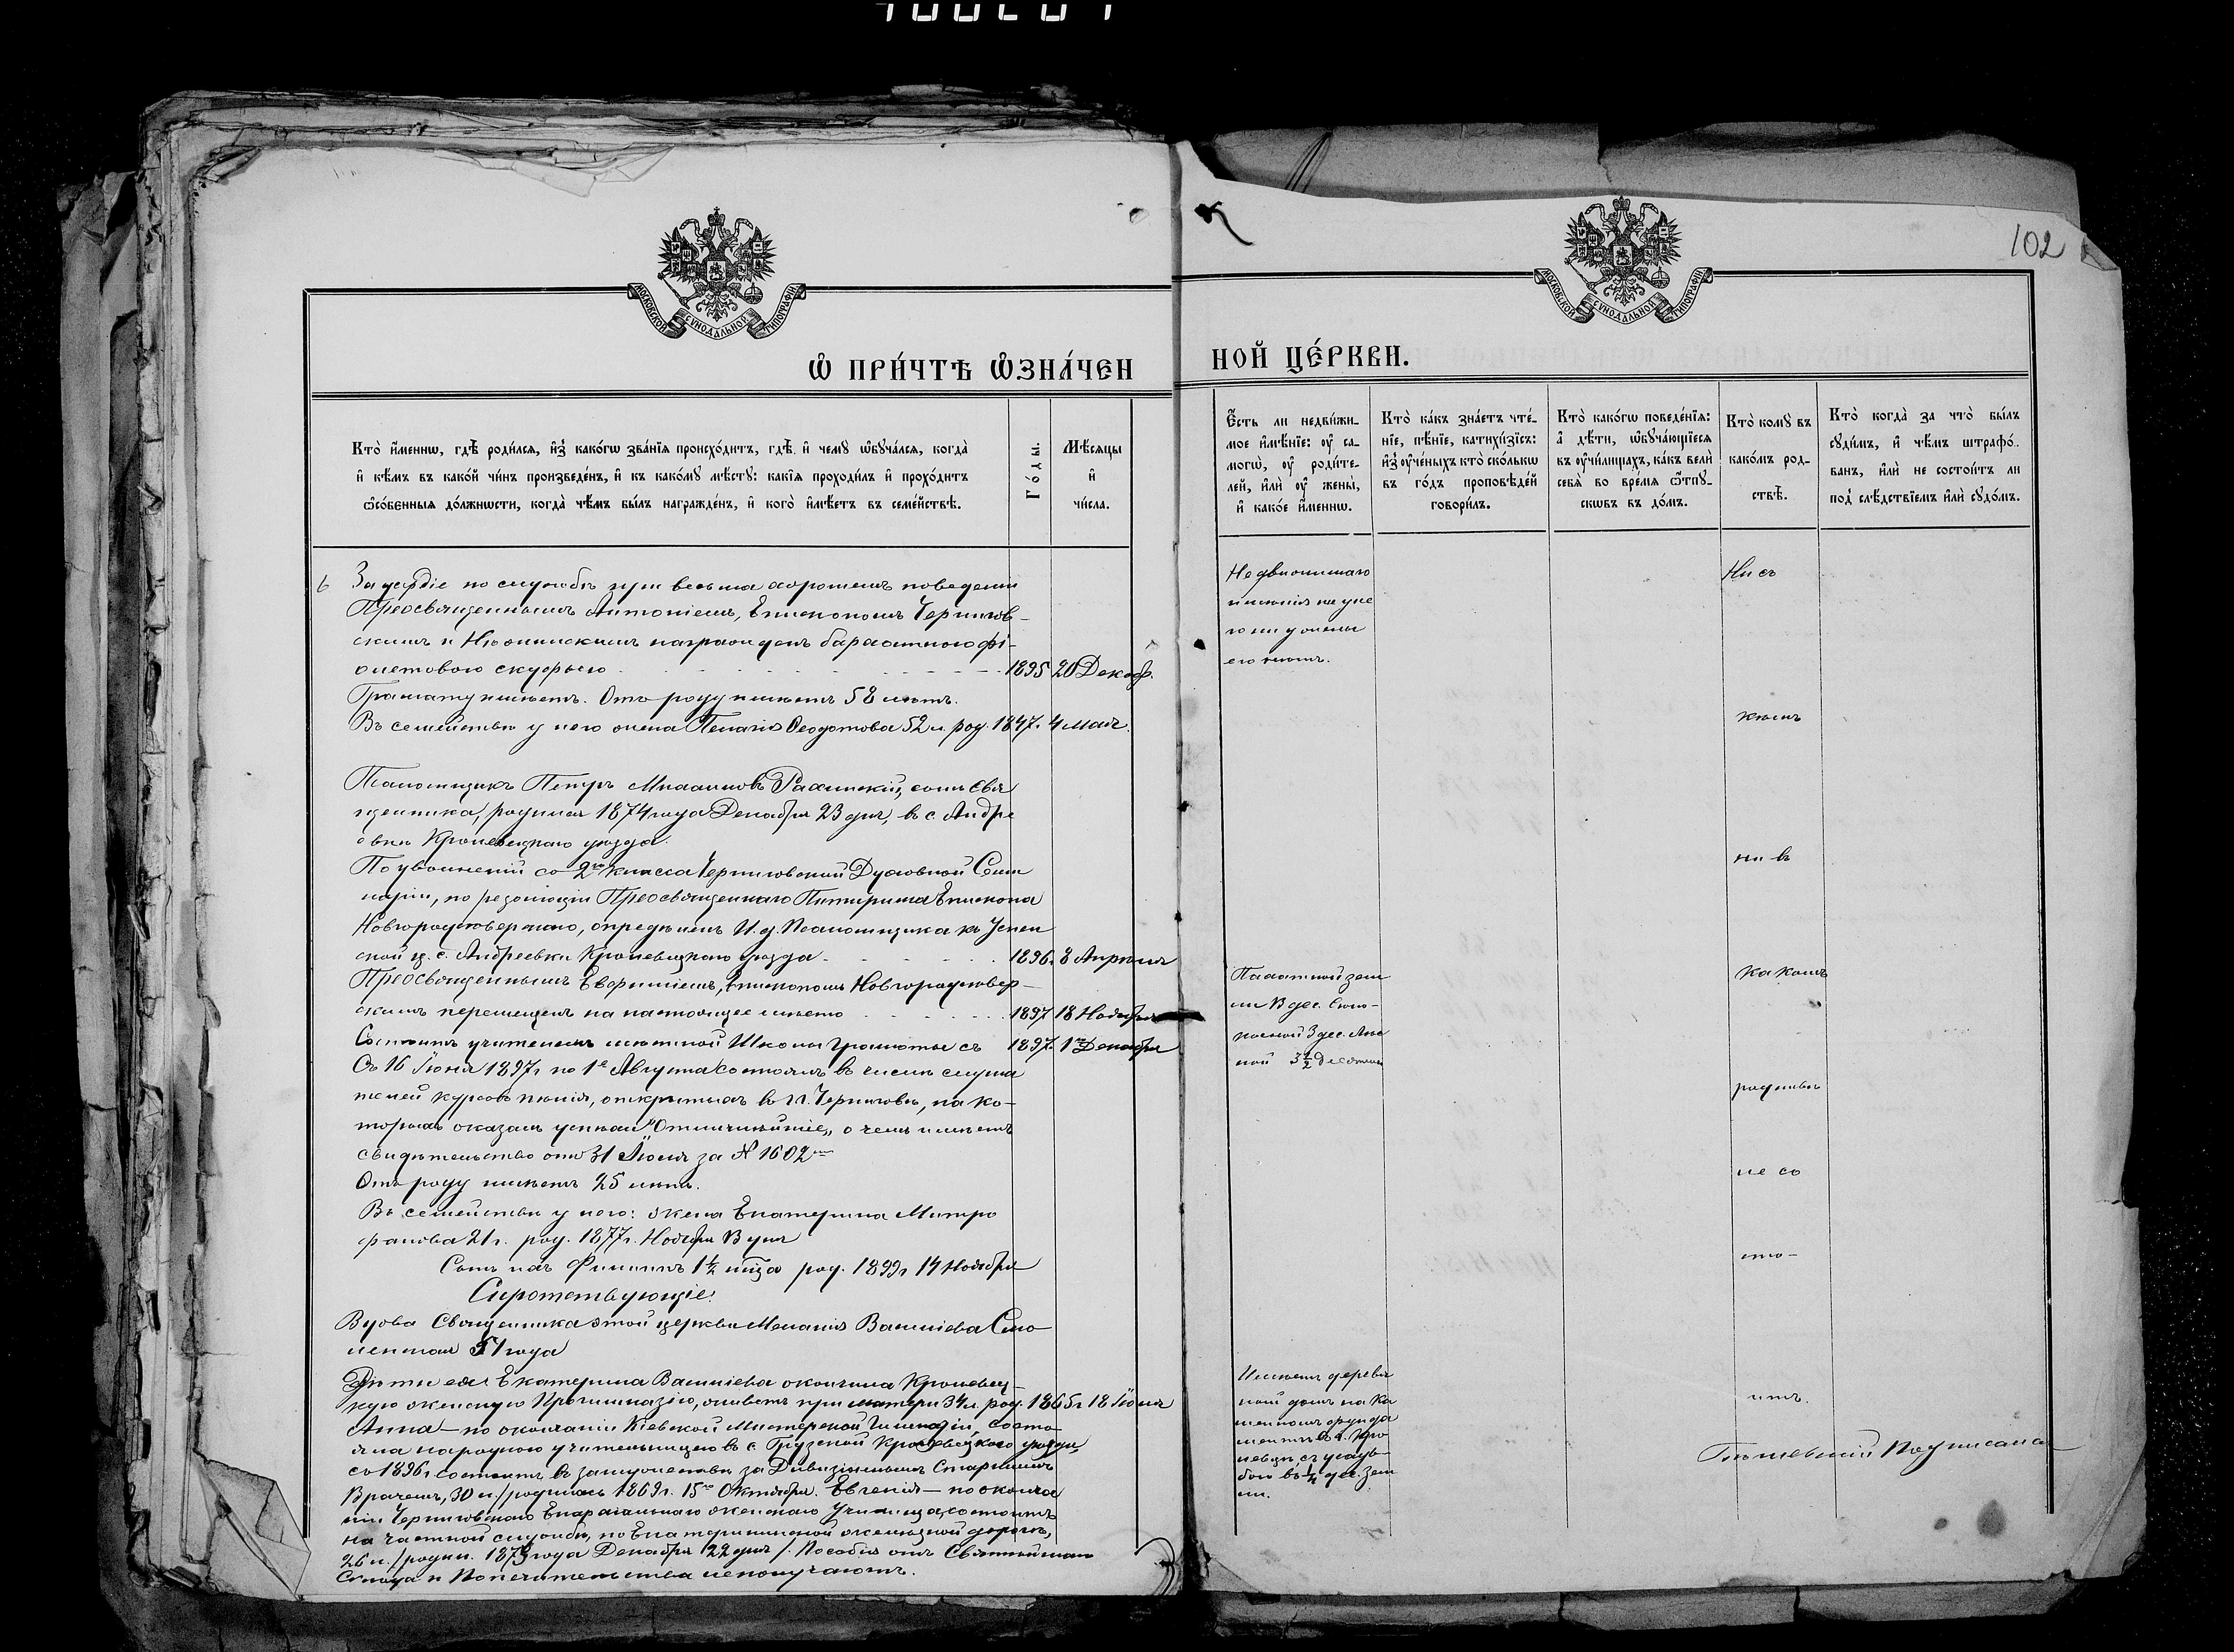 102
МОСКОВСКОЙ СѴНОДАЛЬНОЙ ТИПОГРАФІИ
МОСКОВСКОЙ СѴНОДАЛЬНОЙ ТИПОГРАФІИ
Ѡ ПРИ́ЧТѢ Ѡ҆ЗНА́ЧЕН
НОЙ ЦЕ́РКВИ.
Кто̀ и҆́меннѡ, гдѣ̀ роди́лсѧ, и҆з̾ како́гѡ зва́нїѧ происхо́дитъ, гдѣ̀ и҆ чемꙋ̀ ѡ҆бꙋча́лсѧ, когда̀
и҆ кѣ́мъ въ како́й чи́нъ произведе́нъ, и҆ къ како́мꙋ мѣ́стꙋ: какі̑ѧ проходи́лъ и҆ прохо́дитъ
ѻ҆со́бенныѧ до́лжнѡсти, когда̀ чѣ́мъ бы́лъ награжде́нъ, и҆ кого̀ и҆мѣ́етъ въ семе́йствѣ.
Го́ды.
Мѣ́сѧцы
и҆
чи́сла.
Є҆́сть ли недви́жи-
мое и҆мѣ́нїе: ᲂу҆ са-
могѡ̀, ᲂу҆ роди́те-
лей, и҆лѝ ᲂу҆ жены̀,
и҆ како́е и҆́меннѡ.
Кто̀ ка́къ зна́етъ чте́-
нїе, пѣ́нїе, катихи́зїсъ:
и҆з̾ ᲂу҆че́ныхъ кто̀ ско́лькѡ
въ го́дъ проповѣ́дей
говори́лъ.
Кто̀ како́гѡ поведе́нїѧ:
а҆ дѣ́ти, ѡ҆бꙋча́ющїесѧ
въ ᲂу҆чи́лищахъ, ка́къ велѝ
себѧ̀ во вре́мѧ ѿпꙋ-
скѡвъ въ до́мъ.
Кто̀ комꙋ̀ въ
како́мъ род-
ствѣ̀.
Кто̀ когда̀ за что̀ бы́лъ
сꙋди́мъ, и҆ чѣ́мъ штрафо́-
ванъ, и҆лѝ не состои́тъ ли
под̾ слѣ́дствїемъ и҆лѝ сꙋдо́мъ.
За усердіе по службѣ при весьма хорошемъ поведеніи
Преосвященнымъ Антоніемъ, Епископомъ Чернигов-
скимъ и Нѣжинскимъ награжденъ бархатною фі-
олетовою скуфьею - - - 1895 20 Декаб.
Грамату имѣетъ. Отъ роду имѣетъ 58 лѣтъ.
Въ семействѣ у него жена Пелагія Ѳеодотова 52 л. род. 1847. 4 мая.
Псаломщикъ Петръ Михаиловъ Рахинскій, сынъ Свя
щенника, родился 1874 года Декабря 23 дня, въ с. Андре
евкѣ Кролевецкаго уѣзда.
По увольненіи со 2го класса Черниговской Духовной Семи
наріи, по резолюціи Преосвященнаго Питирима Епископа
Новгородсѣверскаго, опредѣленъ И. д. Псаломщика къ Успен
ской ц. с. Андреевки Кролевецкаго уѣзда - - - 1896. 8 Апрѣля
Преосвященнымъ Евфиміемъ, Епископомъ Новгородсѣвер-
скимъ перемѣщенъ на настоящее мѣсто - - - 1897 18 Ноября
Состоитъ учителемъ мѣстной Школы Грамоты съ 1897. 1го Декабря
Съ 16 Іюня 1897 г. по 1е Августа состоялъ въ числѣ слуша
телей курсовъ пѣнія, открытыхъ въ г. Черниговѣ, на ко-
торыхъ оказалъ успѣхи "Отличнѣйшіе„ о чемъ имѣетъ
свидѣтельство отъ 31 Іюля за № 1602
Отъ роду имѣетъ 25 лѣтъ.
Въ семействѣ у него: жена Екатерина Митро
фанова 21 г. род. 1877 г. Ноября дня
Сынъ ихъ Филиппъ 1½ мѣс. род. 1899 г 14 Ноября
Сиротствующіе.
Вдова Священника этой церкви Меланія Василіева Смо
ленская 51 года
Дѣти ея: Екатерина Василіева окончила Кролевец-
кую женскую Прогимназію, живетъ при матери 34 л. род. 1865 г 18 Іюня
Анна — по окончаніи Кіевской Гимназіи, состо-
яла народною учительницею въ с. Грузской Кролевецкаго уѣзда,
со 1896 г. состоитъ въ замужествѣ за Дивизіоннымъ Старшимъ
Врачемъ, 30 л. /родилась 1869 г. 15го Октября. Евгенія — по оконча
ніи Черниговскаго Епархіальнаго женскаго Училища, состоитъ
на частной службѣ, по Екатерининской желѣзной дорогѣ,
26 л. /родил. 1873 года Декабря 22 дня/. Пособія отъ Святѣйшаго
Сѵнода и Попечительства не получаютъ.
Недвижимаго
имѣнія ни у не
го ни у жены
его нѣтъ.
Пахатной зем
ли дес. Сѣно-
косной 3 дес. Лѣс
ной 3½ десятины
Имѣетъ деревян
ный домъ на ка
менномъ фунда
ментѣ въ г. Кро
левцѣ съ усадь-
бою въ ¼ дес. зем
ли.
Ни съ
кѣмъ
ни въ
какомъ
родствѣ
не со
сто-
итъ.